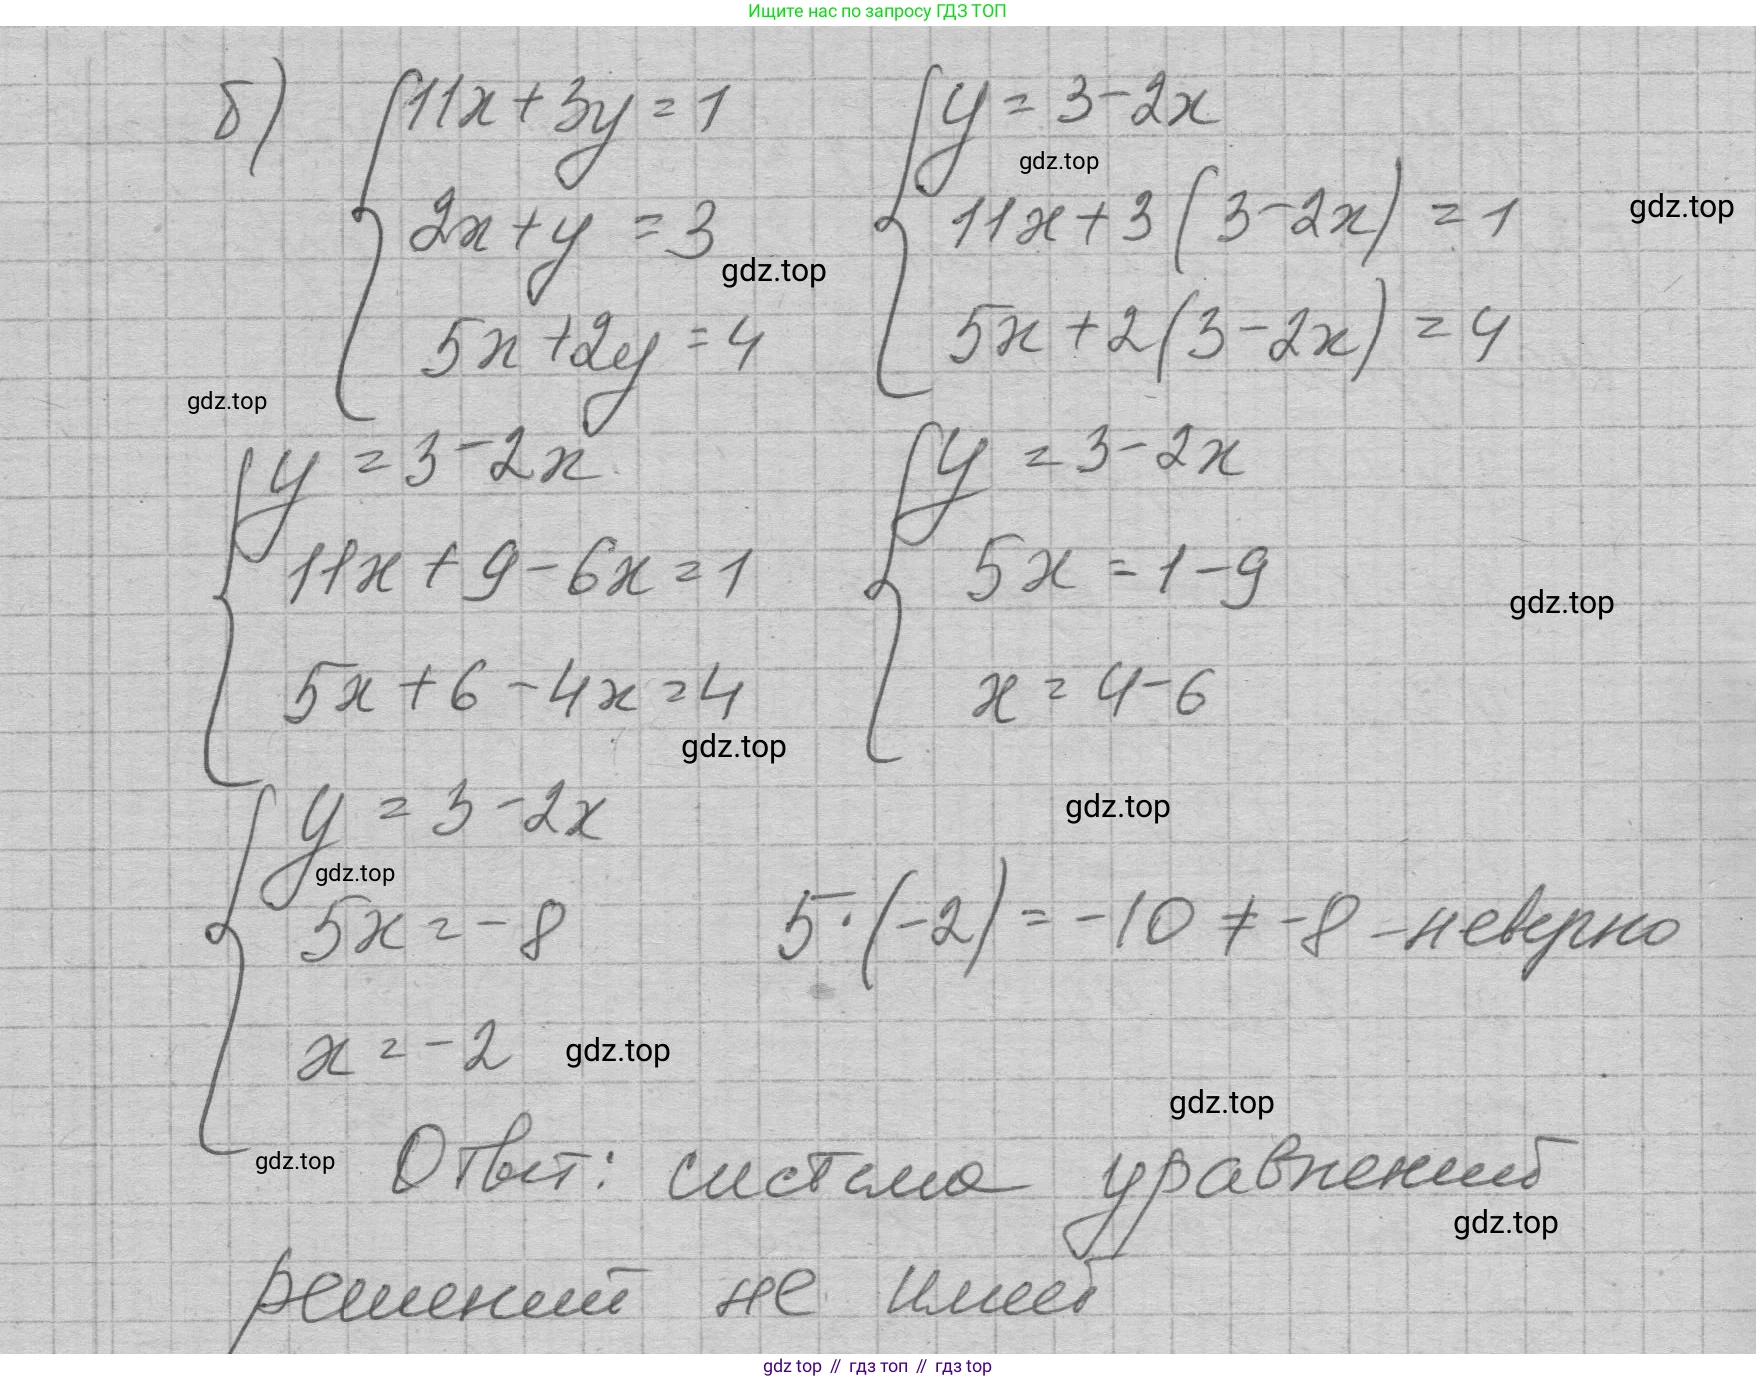 Ищите нас по запросу ГДЗ ТОП
б) 11x + 3y = 1
2x + y = 3
5x + 2y = 4
y = 3 - 2x
gdz.top
11x + 3(3 - 2x) = 1
gdz.top
5x + 2(3 - 2x) = 4
gdz.top
gdz.top
y = 3 - 2x
11x + 9 - 6x = 1
5x + 6 - 4x = 4
gdz.top
y = 3 - 2x
5x = 1 - 9
gdz.top
x = 4 - 6
y = 3 - 2x
gdz.top
gdz.top
5x = -8
5·(-2) = -10 ≠ -8 - неверно
x = -2
gdz.top
gdz.top
gdz.top
Ответ: система уравнений
gdz.top
решений не имеет
gdz top // гдз топ // гдз top